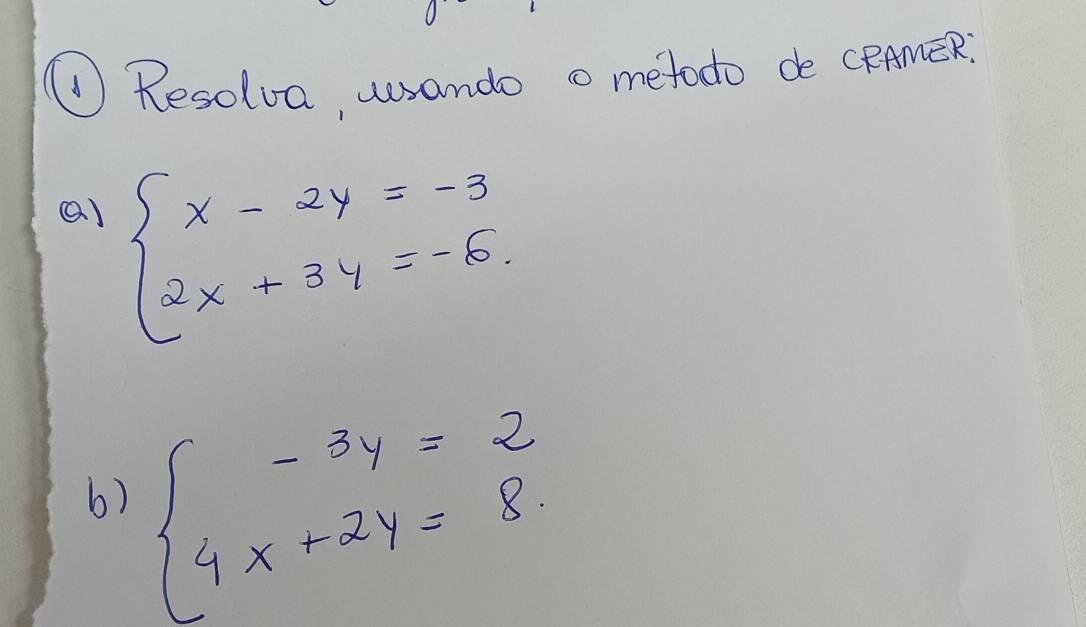 ① Resolva, usando o método de CRAMER:
a) { x - 2y = -3
2x + 3y = -6.
b) { - 3y = 2
4x + 2y = 8.